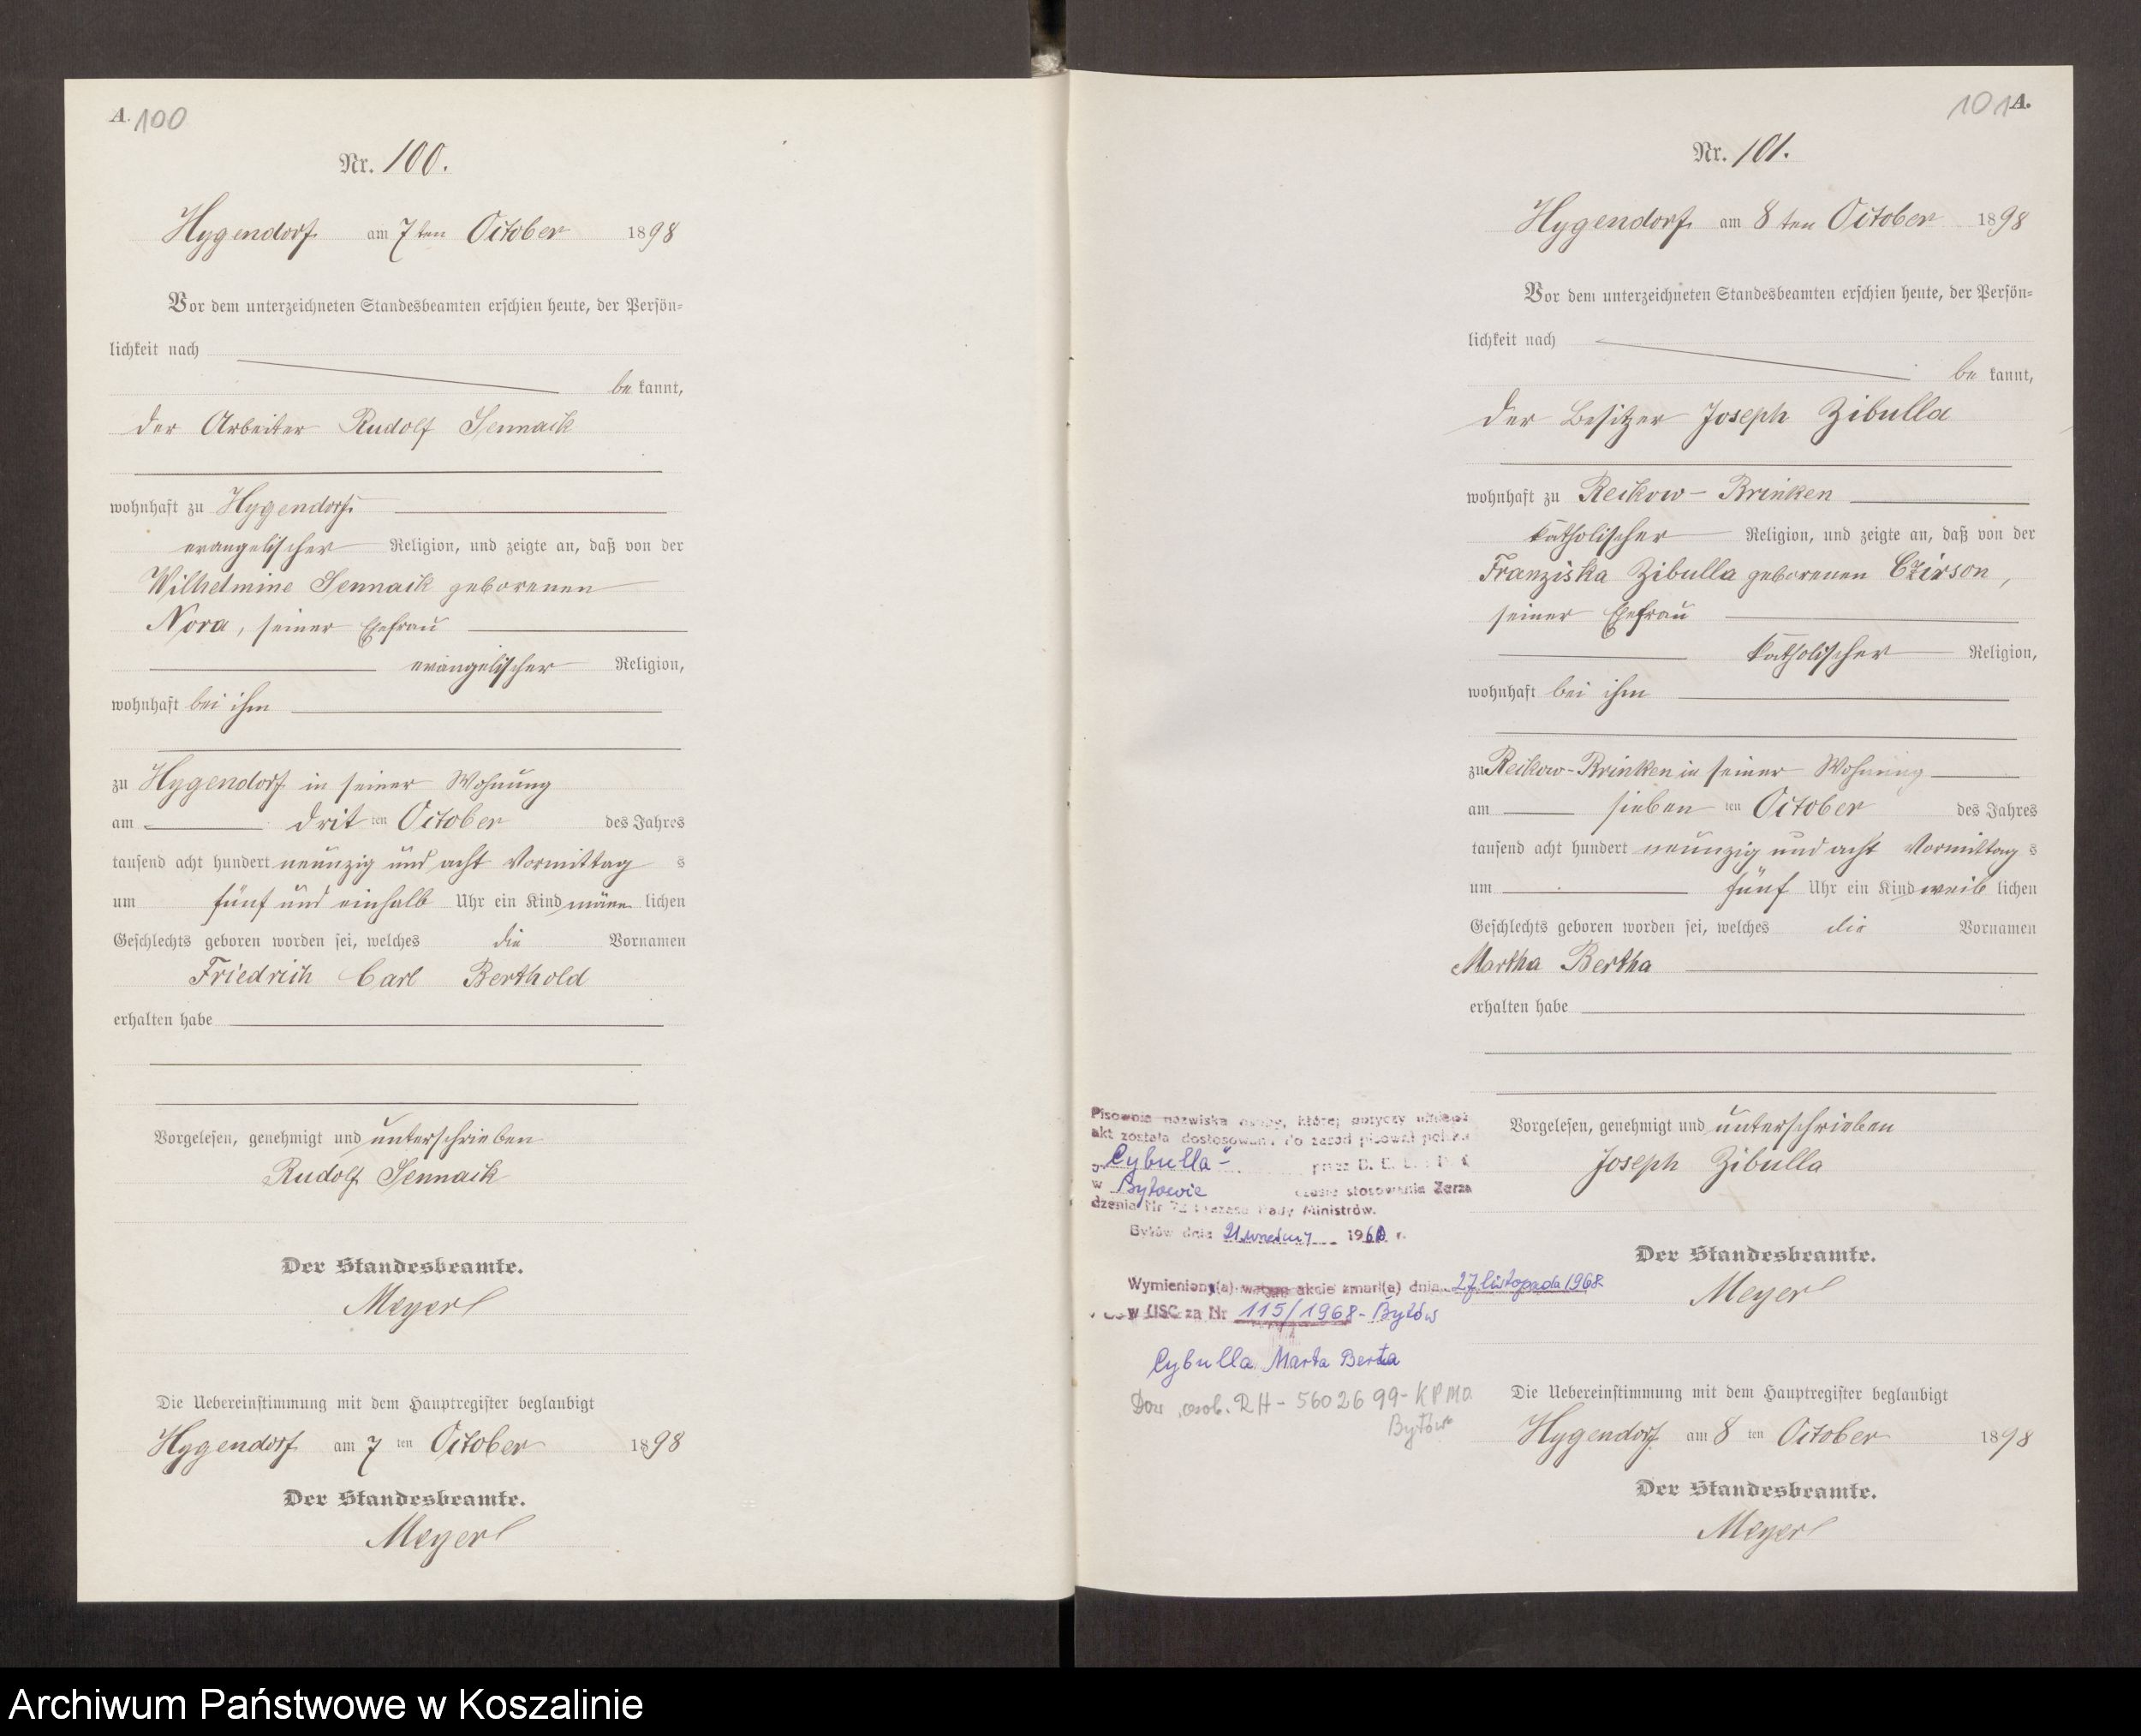 A. 100
Nr. 100.
Hygendorf am 7ten October 1898
Vor dem unterzeichneten Standesbeamten erschien heute, der Persön-
lichkeit nach
be kannt,
der Arbeiter Rudolf
wohnhaft zu Hygendorf
evangelischer Religion, und zeigte an, daß von der
Wilhelmine geborenen
Nora, seiner Ehefrau
evangelischer Religion,
wohnhaft bei ihm
zu Hygendorf in seiner Wohnung
am drit ten October des Jahres
tausend acht hundert neunzig und acht Vormittag s
um fünf und einhalb Uhr ein Kind männ lichen
Geschlechts geboren worden sei, welches die Vornamen
Friedrich Carl Berthold
erhalten habe
Vorgelesen, genehmigt und unterschrieben
Rudolf
Der Standesbeamte.
Meyer
Die Uebereinstimmung mit dem Hauptregister beglaubigt
Hygendorf am 7 ten October 1898
Der Standesbeamte.
Meyer
101 A.
Nr. 101.
Hygendorf am 8 ten October 1898
Vor dem unterzeichneten Standesbeamten erschien heute, der Persön-
lichkeit nach
be kannt,
der Besitzer Joseph Zibulla
wohnhaft zu Reckow-Brinken
katholischer Religion, und zeigte an, daß von der
Franziska Zibulla geborenen Czirson,
seiner Ehefrau
katholischer Religion,
wohnhaft bei ihm
zu Reckow-Brinken in seiner Wohnung
am sieben ten October des Jahres
tausend acht hundert neunzig und acht Vormittag s
um fünf Uhr ein Kind weib lichen
Geschlechts geboren worden sei, welches die Vornamen
Martha Bertha
erhalten habe
Vorgelesen, genehmigt und unterschrieben
Joseph Zibulla
Der Standesbeamte.
Meyer
Die Uebereinstimmung mit dem Hauptregister beglaubigt
Hygendorf am 8 ten October 1898
Der Standesbeamte.
Meyer
Pisownia nazwiska osoby, której dotyczy niniejszy
akt została dostosowana do zasad pisowni polskiej
"Cybulla" przez
w Bytowie w czasie stosowania Zarzą
dzenia Nr Prezesa Rady Ministrów.
Bytów dnia 21 196 r.
Wymieniony(a) w akcie zmarł(a) dnia 27 listopada 1968
w USC za Nr 115/1968 - Bytów
Cybulla Marta Berta
Dow. osob. RH - 5602699 - KPMO
Bytów
Archiwum Państwowe w Koszalinie